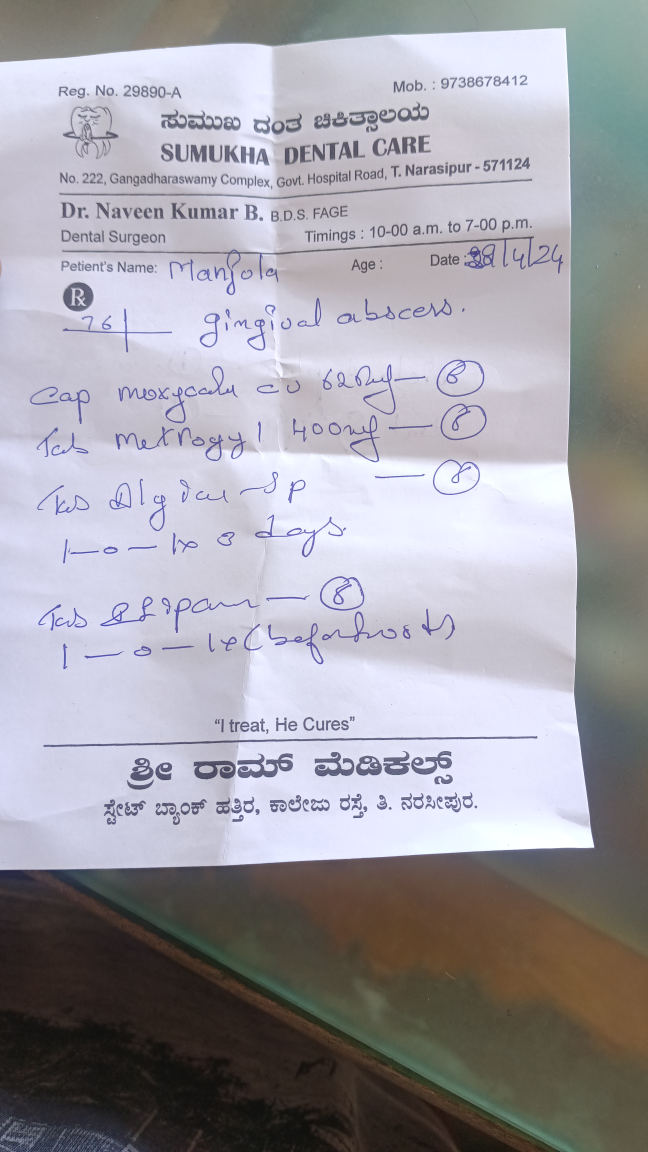 Reg. No. 29890-A
Mob. : 9738678412
ಸುಮುಖ ದಂತ ಚಿಕಿತ್ಸಾಲಯ
SUMUKHA DENTAL CARE
No. 222, Gangadharaswamy Complex, Govt. Hospital Road, T. Narasipur - 571124
Dr. Naveen Kumar B. B.D.S. FAGE
Dental Surgeon
Timings : 10-00 a.m. to 7-00 p.m.
Petient's Name: Manjola Age : Date : 28/4/24
Rx
76 gingival abscess.
Cap CV 625mg — 8
Tab Metrogyl 400mg — 8
Tab -SP — 8
1-0-1x 3 days
Tab — 8
1-0-1x (before food)
"I treat, He Cures"
ಶ್ರೀ ರಾಮ್ ಮೆಡಿಕಲ್ಸ್
ಸ್ಟೇಟ್ ಬ್ಯಾಂಕ್ ಹತ್ತಿರ, ಕಾಲೇಜು ರಸ್ತೆ, ತಿ. ನರಸೀಪುರ.